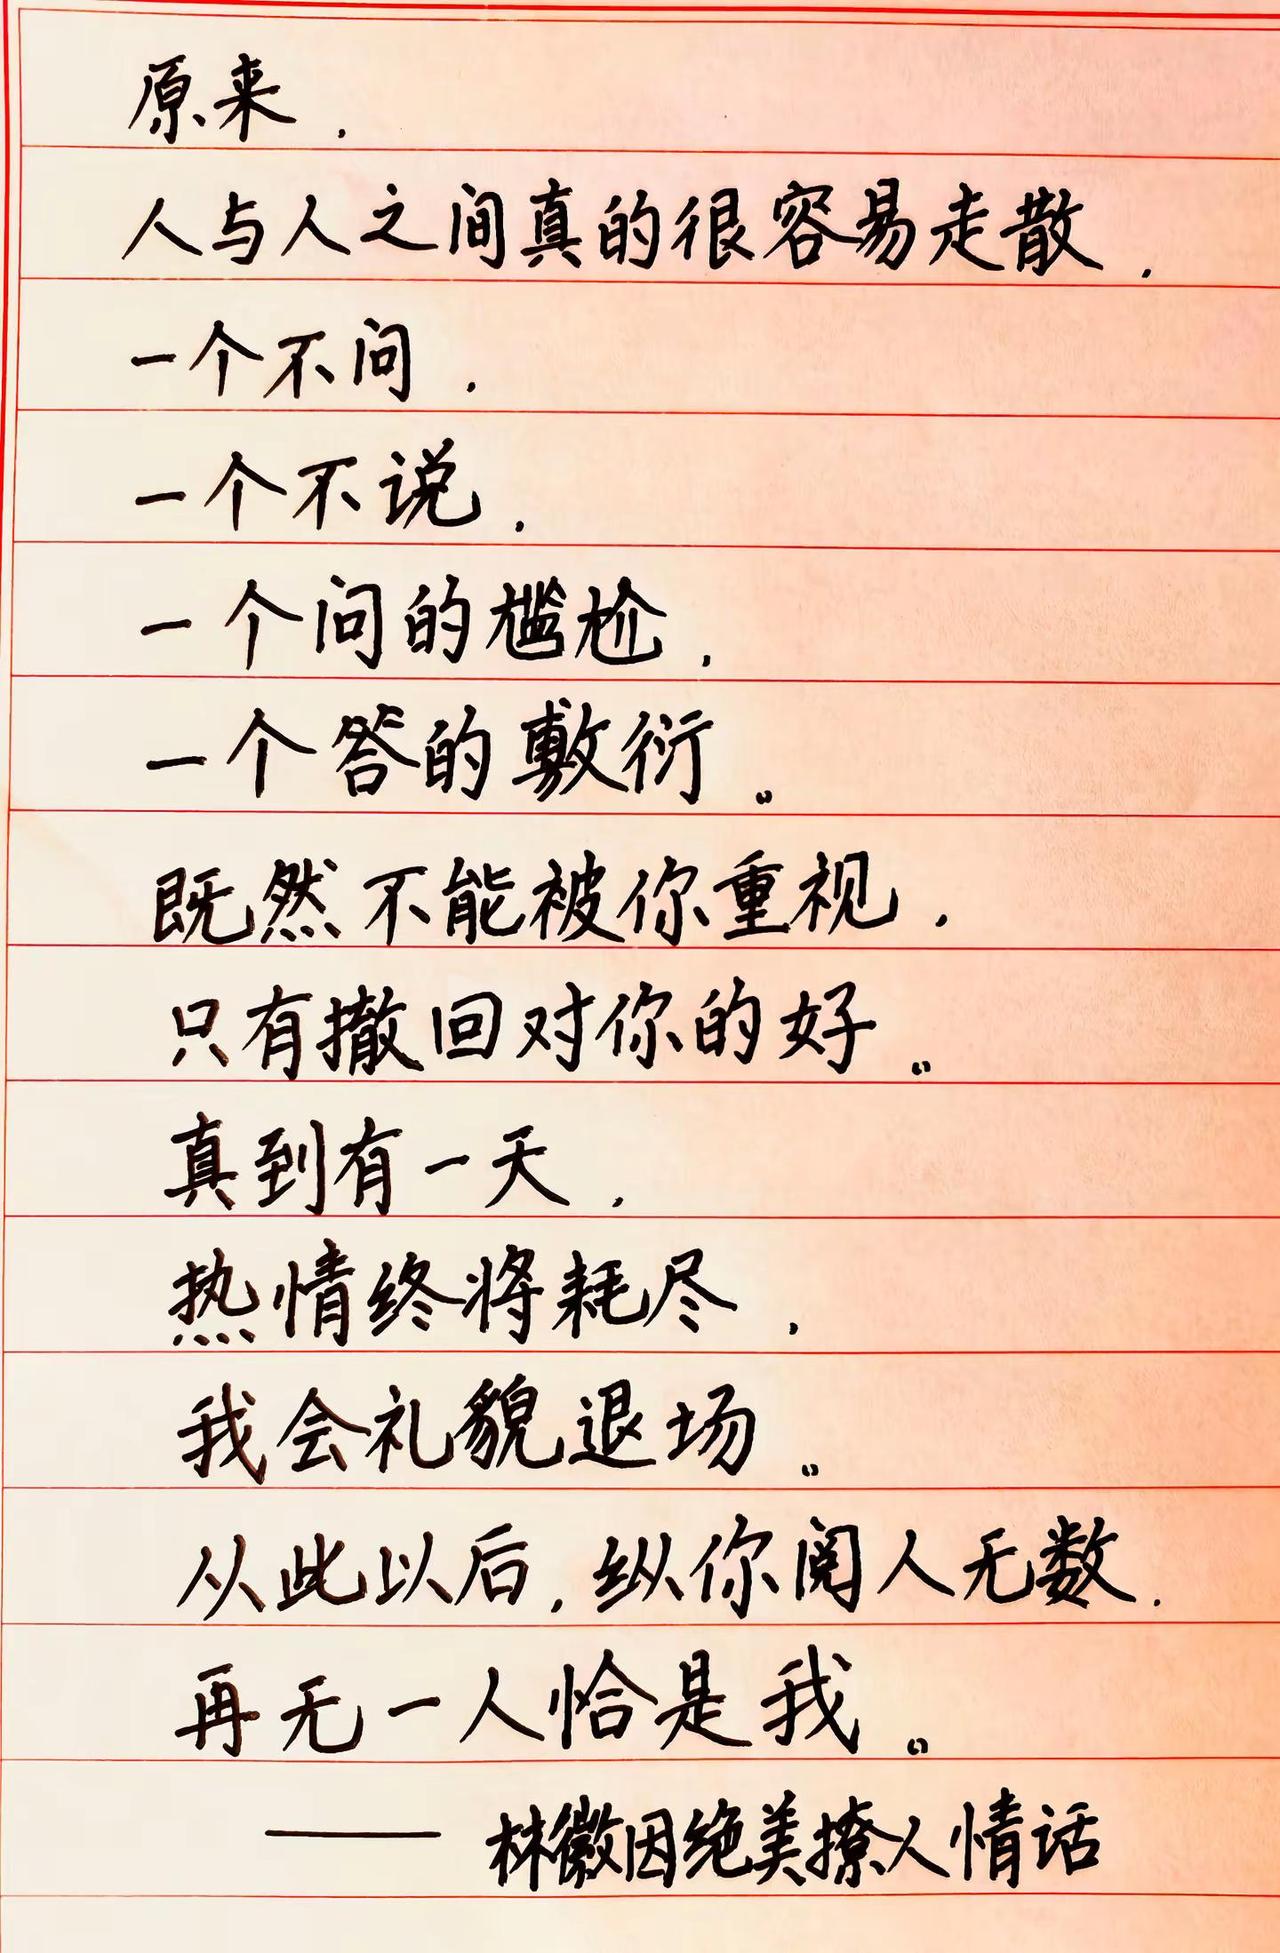 原来，
人与人之间真的很容易走散，
一个不问，
一个不说，
一个问的尴尬，
一个答的敷衍。
既然不能被你重视，
只有撤回对你的好。
真到有一天，
热情终将耗尽，
我会礼貌退场。
从此以后，纵你阅人无数，
再无一人恰是我。
——林徽因绝美撩人情话